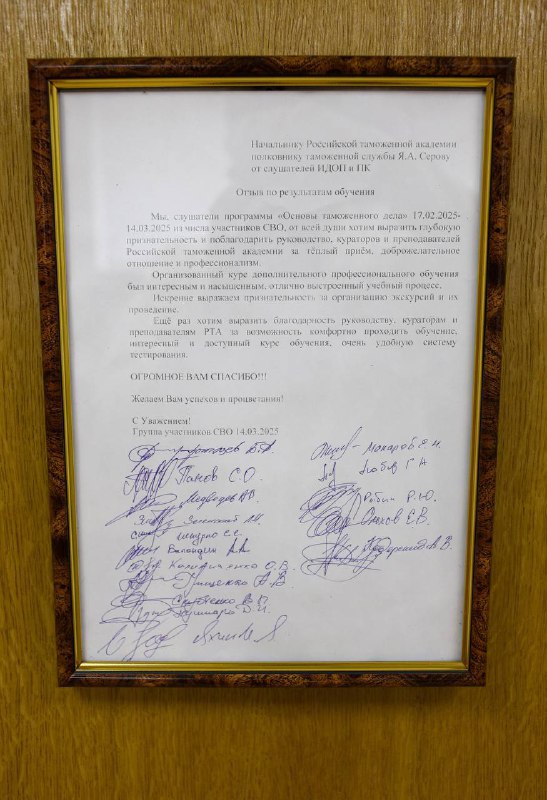 Начальнику Российской таможенной академии
полковнику таможенной службы Я.А. Серову
от слушателей ИДОП и ПК
Отзыв по результатам обучения
Мы, слушатели программы «Основы таможенного дела» 17.02.2025-
14.03.2025 из числа участников СВО, от всей души хотим выразить глубокую
признательность и поблагодарить руководство, кураторов и преподавателей
Российской таможенной академии за тёплый приём, доброжелательное
отношение и профессионализм.
Организованный курс дополнительного профессионального обучения
был интересным и насыщенным, отлично выстроенный учебный процесс.
Искренне выражаем признательность за организацию экскурсий и их
проведение.
Ещё раз хотим выразить благодарность руководству, кураторам и
преподавателям РТА за возможность комфортно проходить обучение,
интересный и доступный курс обучения, очень удобную систему
тестирования.
ОГРОМНОЕ ВАМ СПАСИБО!!!
Желаем Вам успехов и процветания!
С Уважением!
Группа участников СВО 14.03.2025
Макаров Е.И.
Панов С.О.
Медведев
Робин Р.Ю.
Е.В.
Гриценко А.В